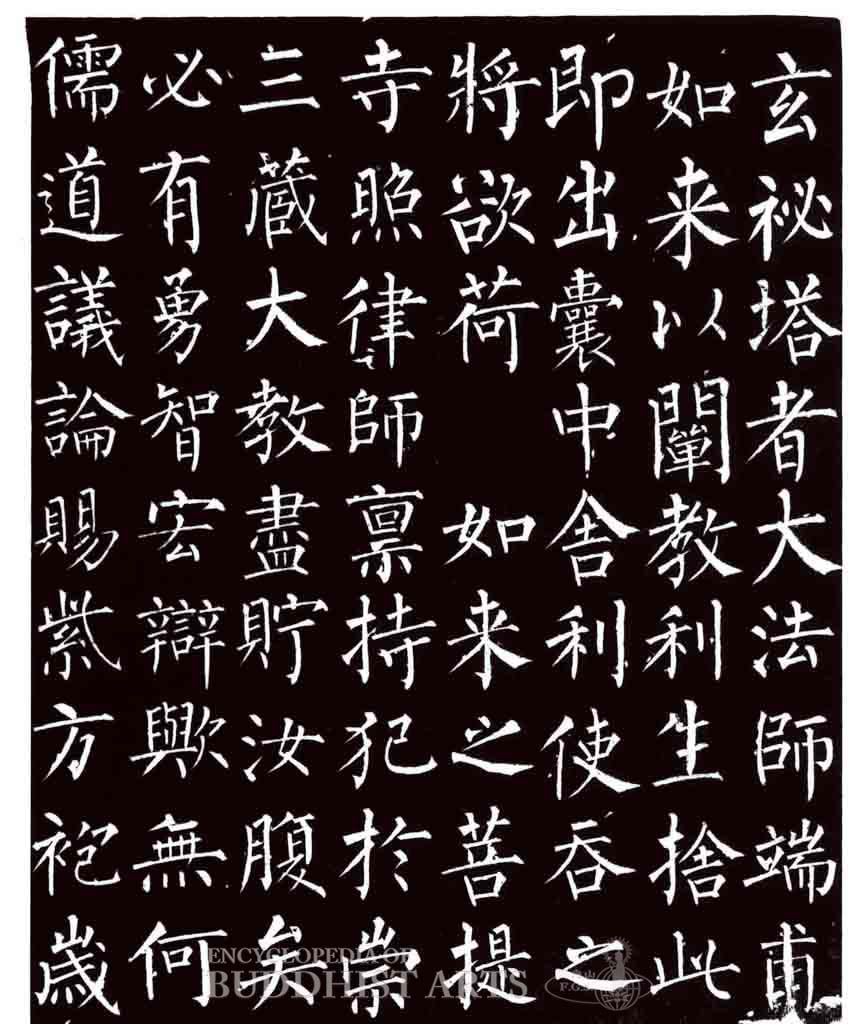 玄祕塔者大法師端甫
如来以闡教利生捨此
即出囊中舍利使吞之
將欲荷 如来之菩提
寺照律師禀持犯於崇
三蔵大教盡貯汝腹矣
必有勇智宏辯歟無何
儒道議論賜紫方袍歳
ENCYCLOPEDIA OF
BUDDHIST ARTS